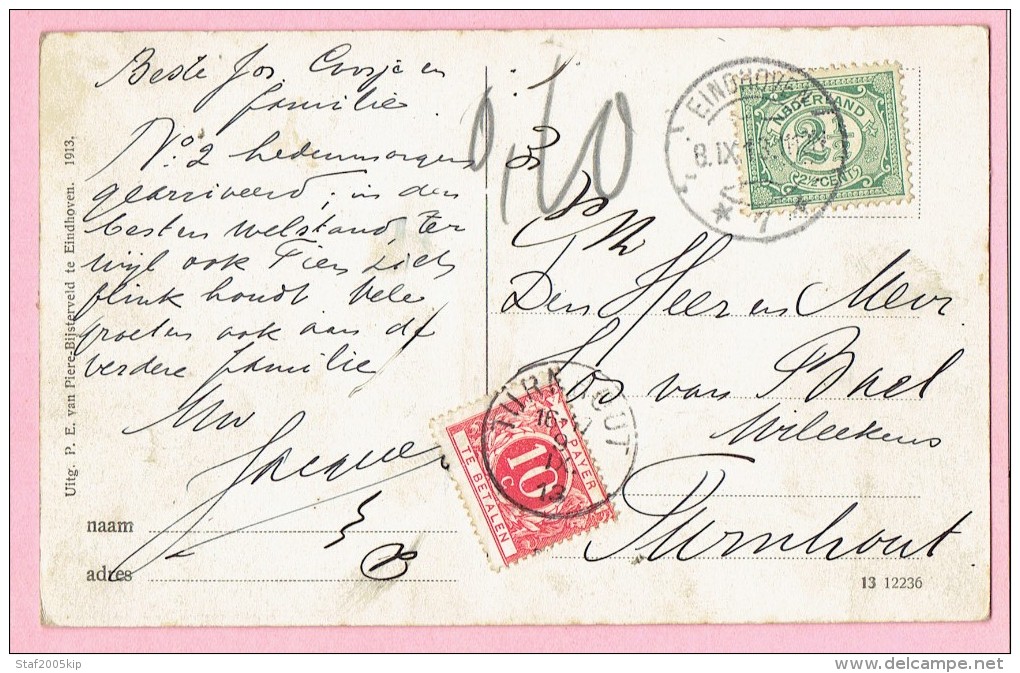 Beste Jos. Coosje en
familie
No. 2 hedenmorgen
gearriveerd; in den
besten welstand, ter
wijl ook Fien zich
flink houdt Vele
groeten ook aan de
verdere familie
Uw
Jacques
naam
adres
Uitg. P. E. van Piere-Bijsterveld te Eindhoven. 1913.
0,10
EINDHOVEN
8.IX.13
7
NEDERLAND
2½
2½ CENT
Den Heer en Mevr
Jos van Bael
Wileekens
Turnhout
TURNHOUT
16
9
IX
13
A PAYER
10
C
TE BETALEN
13 12236
Staf2005kip
www.delcampe.net